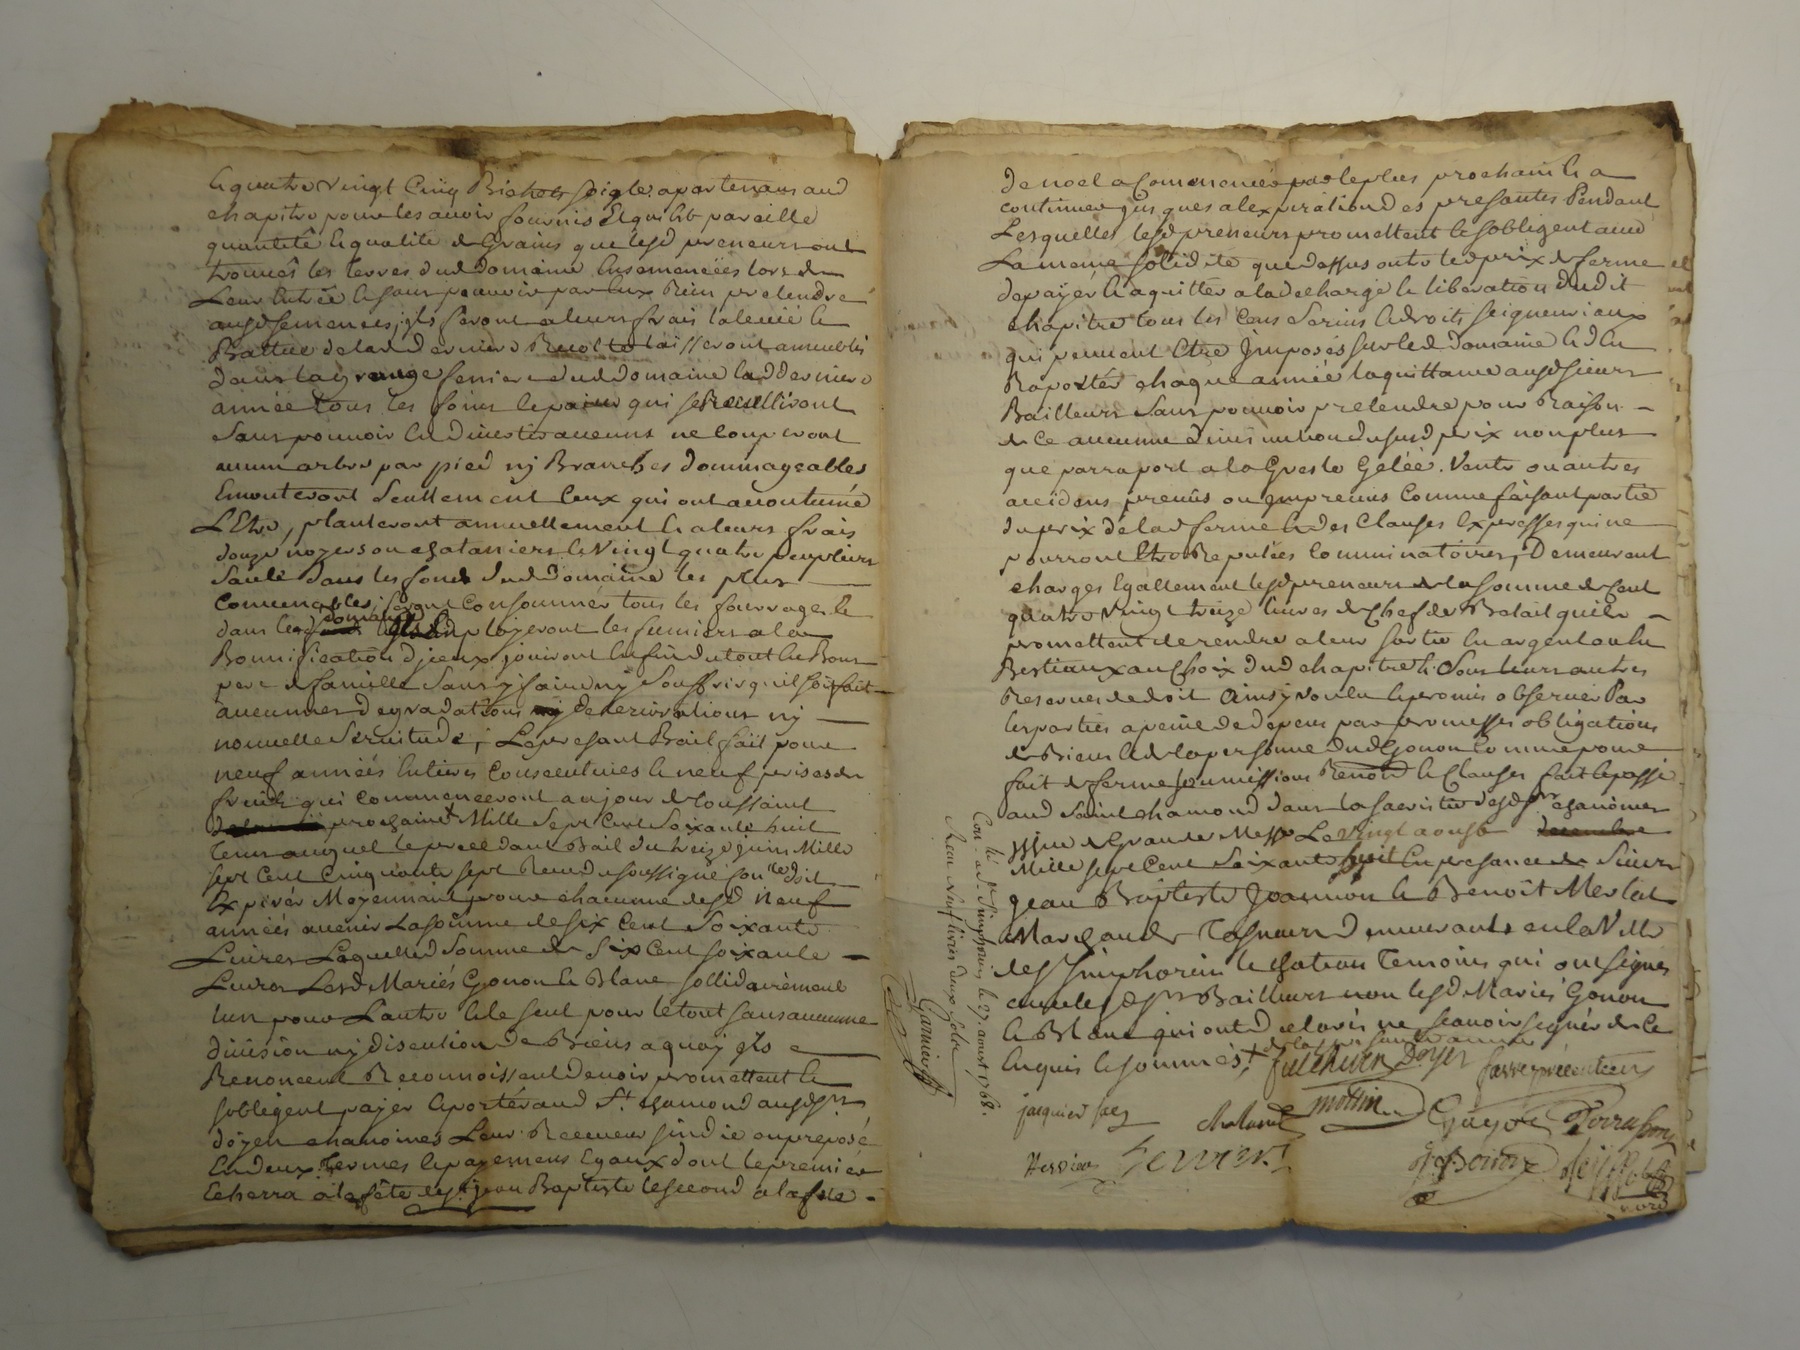 & quatre vingt Cinq Bichets seigle apartenans aud
chapitre pour les avoir fournis Et qui est pareille
quantité & qualité de Grains que lesd preneurs ont
trouvés les terres dud domaine Ensemencées lors de
Leur Entrée & sans pouvoir par Eux Rien pretendre
auxd semences; ils feront a leurs frais la levée &
Battue de lad derniere Recolte laisseront ameublis
dans la grange feniere dud domaine lad derniere
année tous les foins & pailles qui se Recuilliront
Sans pouvoir En Divertir aucuns ne Couperont
aucun arbre par pied ny Branches dommageables
Emonteront Seullement Ceux qui ont accoutumé
L'Etre, planteront annuellement & a leurs frais
douze noyers ou chataniers & Vingt quatre peupliers
Saule dans les fonds dud Domaine les plus
Convenables; feront Consommer tous les fourrages &
domaine
dans led Employeront les fumiers a la
Bonnification d'jceux jouiront Enfin du tout En Bons
pere de famille Sans y faire ny Souffrir qu'il soit fait
aucunes degradations ny deteriorations ny
nouvelle Servitude; Le present Bail fait pour
neuf années Entieres Consecutives & neuf prises de
fruits qui Commenceront au jour de toussaint
prochaine Mille Sept Cent Soixante huit
tems auquel le precedant Bail du treize juin Mille
sept Cent Cinquante sept Receu du soussigné son dit
Expirer Moyennant pour chacunne desd Neuf
années avenir La somme de Six Cent Soixante
Livres Laquelle Somme de Six Cent soixante
Livres Lesd Mariés Gonon & Blanc sollidairement
l'un pour L'autre & le seul pour le tout sans aucunne
division ny discution de Biens a quoy ils
Renoncent Reconnoissent devoir promettent &
sobligent payer & porter aud St. chamond auxd srs
doyen chanoines Leur Receveur sindic ou preposé
En deux Termes & payemens Egaux dont le premier
Echerra a la fête de st. jean Baptiste le second a la fete
de noel a Commencer par les plus prochains & a
continuer jusques a l'expiration des presantes Pendant
Lesquelles lesd preneurs promettent & sobligent avec
La meme solidité que dessus outre led prix de ferme
de payer & aquitter a la decharge & liberation dudit
chapitre tous les Cens Servis & droits seigneuriaux
qui peuvent Etre Jmposés sur led domaine & d'En
Raporter chaque année la quittance auxd sieurs
Bailleurs Sans pouvoir pretendre pour Raison
de Ce aucunne diminution du susd prix non plus
que par raport a la Gresle Gelée. Vents ou autres
accidens prevûs ou jmprevus Comme faisant partie
du prix de lad ferme & des Clauses Expresses qui ne
pourront Etre Reputées Comminatoires, Demeurent
charges Egallement lesd preneurs de la somme de Cent
quatre Vingt treize livres de Chef de Betail qu'ils
promettent de rendre a leur sortie En argent ou En
Bestiaux au Choix dud chapitre & Sous leurs autres
Reserves de doit Ainsy voulu & promis observer Par
les parties a peine de depens par promesses obligations
de Biens & de la personne dud Gonon Comme pour
fait de ferme soumissions Renon & Clauses fait & passé
aud Saint chamond dans la sacristie desd srs chanoines
jssue de Grande Messe Le vingt aoust
Mille sept Cent Soixante huit En presance de Sieurs
jean Baptiste Joannon & Benoît Merlat
Marchands Tasneurs demeurants en la Ville
de st Simphorien le chateau Temoins qui ont signés
avec lesd srs Bailleurs non lesd Mariés Gonon
& Blanc qui ont declarés ne scavoir signer de Ce
Enquis & Sommés;
Doyen farre precenteur
jacquier chaland mottin Guyot Terrasson
Hervier Hervier
Con. lé a St. Simphorien le 27. aoust 1768.
Receu Neuf livres deux sols
Garnier